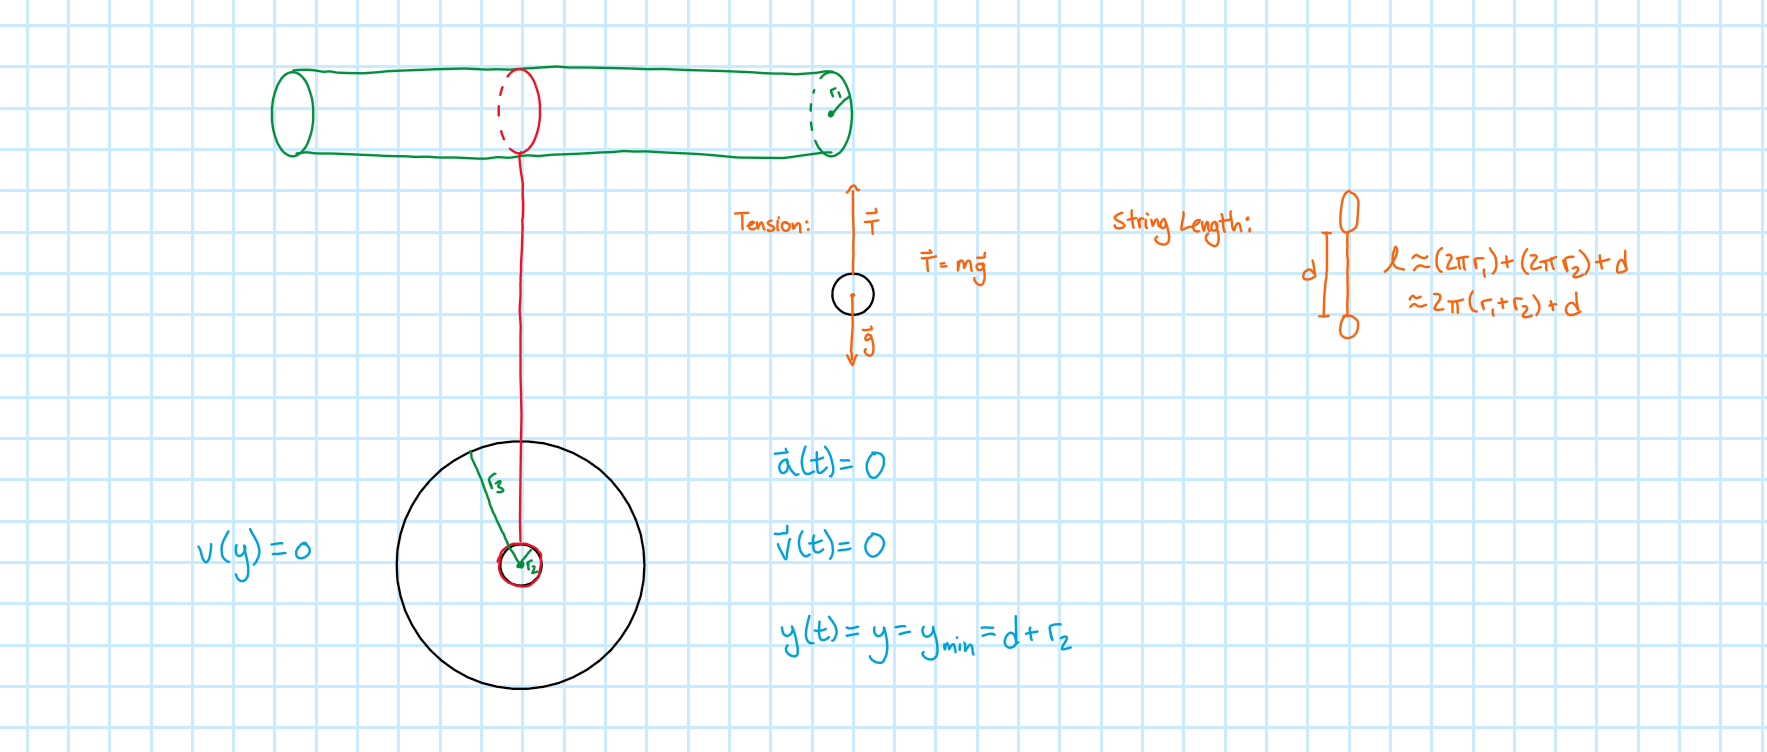 r₁
Tension:
T⃗
T⃗ = mg⃗
g⃗
String Length:
d
l ≈ (2πr₁) + (2πr₂) + d
≈ 2π(r₁+r₂) + d
r₃
r₂
v(y) = 0
a⃗(t) = 0
v⃗(t) = 0
y(t) = y = y_min = d + r₂